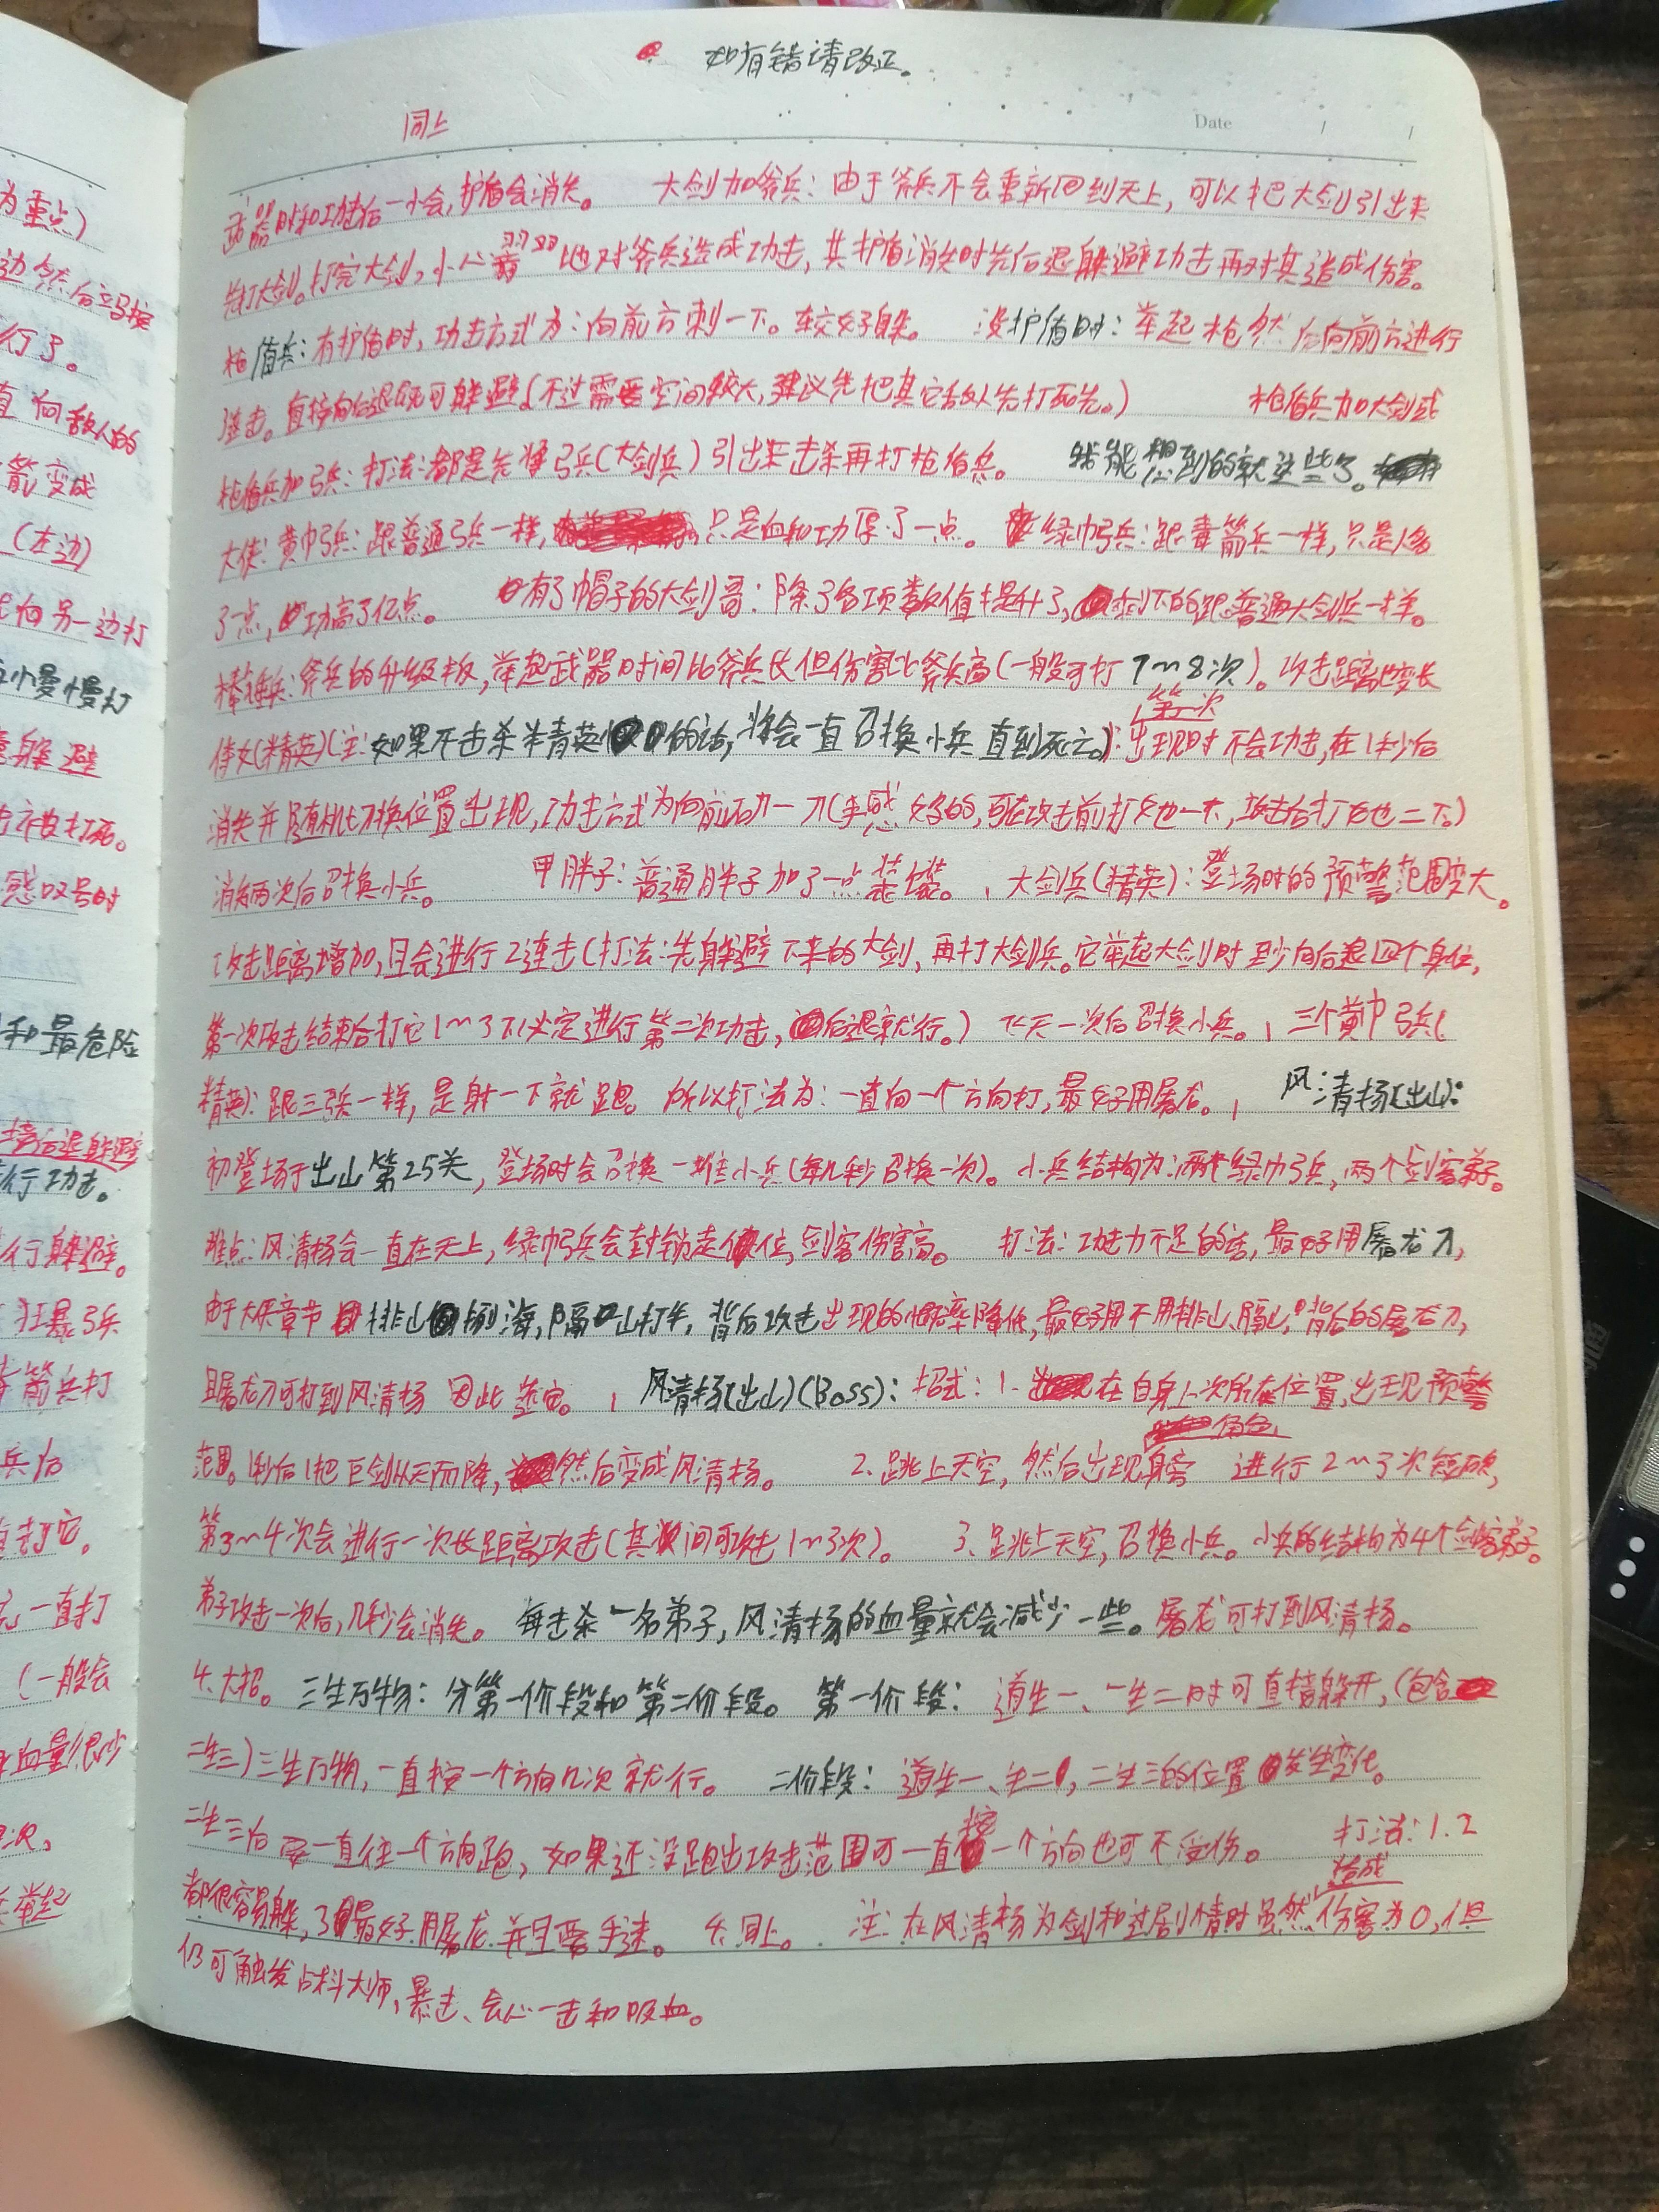 如有错请改正。
同上
Date
为重点)
边然后立马按
行了。
直向敌人的
箭变成
(左边)
向另一边打
小慢慢打
躲避
被打死。
感叹号时
和最危险
后退躲避
行功击。
行躲避。
狂暴弓兵
箭兵打
兵后
打它。
一直打
(一般会
血量很少
次,
举起
武器时和功击后一小会,护盾会消失。 大剑加斧兵:由于斧兵不会重新回到天上,可以把大剑引出来
先打大剑。打完大剑,小心翼翼地对斧兵造成功击,其护盾消失时先后退躲避功击再对其造成伤害。
枪盾兵:有护盾时,功击方式为:向前方刺一下。较好躲。 没护盾时:举起枪然后向前方进行
连击。直接向后退既可躲避(不过需要空间较大,建议先把其它敌人先打死先。) 枪盾兵加大剑或
枪盾兵加弓兵:打法:都是先将弓兵(大剑兵)引出来击杀再打枪盾兵。 能想到的就这些了。
大侠:黄巾弓兵:跟普通弓兵一样,只是血和功厚了一点。 绿巾弓兵:跟毒箭兵一样,只是
了一点,功高了亿点。 有了帽子的大剑哥:除了各项数值提升了,剩下的跟普通大剑兵一样。
棒锤兵:斧兵的升级板,举起武器时间比斧兵长但伤害比斧兵高(一般可打7~8次)。攻击距离也变长
第一次
侍女(精英)(注:如果不击杀精英的话,将会一直召换小兵直到死亡。):出现时不会功击,在1秒后
消失并随机切换位置出现,功击方式为向前功一刀(手感好的,可在攻击前打它一下,攻击后打它二下。)
消失两次后召换小兵。 甲胖子:普通胖子加了一点装备。、大剑兵(精英):登场时的预警范围变大。
攻击距离增加,且会进行2连击(打法:先躲避下来的大剑,再打大剑兵。它举起大剑时至少向后退四个身位,
第一次攻击结束后打它1~3下必定进行第二次功击,后退就行。)飞天一次后召换小兵。、三个黄巾弓兵(
精英):跟三张一样,是射一下就跑。所以打法为:一直向一个方向打,最好用屠龙。、 风清扬(出山):
初登场于出山第25关,登场时会召换一堆小兵(每几秒召换一次)。小兵结构为:两个绿巾弓兵,两个剑客弟子。
难点:风清扬会一直在天上,绿巾弓兵会封锁走位,剑客伤害高。 打法:功击力不足的话,最好用屠龙刀,
由于大侠章节排山倒海,隔山打牛,背后攻击出现的概率降低,最好用不用排山,隔山,背后的屠龙刀,
且屠龙刀可打到风清扬 因此 。、风清扬(出山)(Boss):招式:1.在自身上次所在位置,出现预警
角色
范围。1秒后1把巨剑从天而降,然后变成风清扬。 2.跳上天空,然后出现身旁 进行2~3次短,
第3~4次会进行一次长距离攻击(其间可攻击1~3次)。 3.跳上天空,召换小兵。小兵的结构为4个剑客弟子。
弟子攻击一次后,几秒会消失。 每击杀一名弟子,风清扬的血量就会减少一些。屠龙可打到风清扬。
4.大招。三生万物:分第一阶段和第二阶段。第一阶段:道生一、一生二时可直接躲开,(包含
二生三)三生万物,一直按一个方向几次就行。 二阶段:道生一、生二,二生三的位置发生变化。
二生三后要一直往一个方向跑,如果还没跑出攻击范围可一直按一个方向也可不受伤。 打法:1.2
造成
都很容易躲,3最好用屠龙并且要手速。 4.同上。 注:在风清扬为剑和过剧情时虽然伤害为0,但
仍可触发战斗大师,暴击、会心一击和吸血。